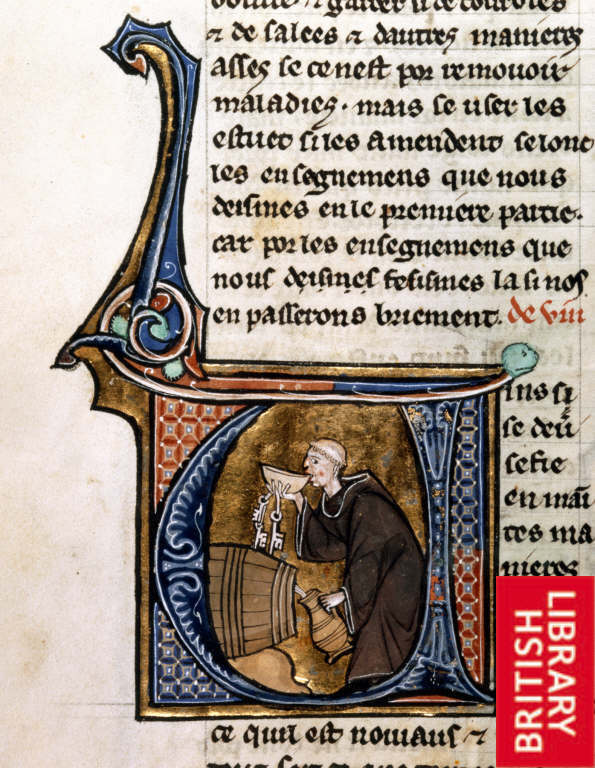 ⁊ de salees ⁊ dautres manieres
asses se ce nest por remouoir
maladies. mais se user les
estuet si les amendent selonc
les ensegnemens que nous
desimes en le premiere partie.
car por les ensegnemens que
nous desimes fesismes la si nos
en passerons briement. de vin
ins si
se deu
sefie
en mai
tes ma
nieres
ce quil est nouiaus ⁊
LIBRARY
BRITISH